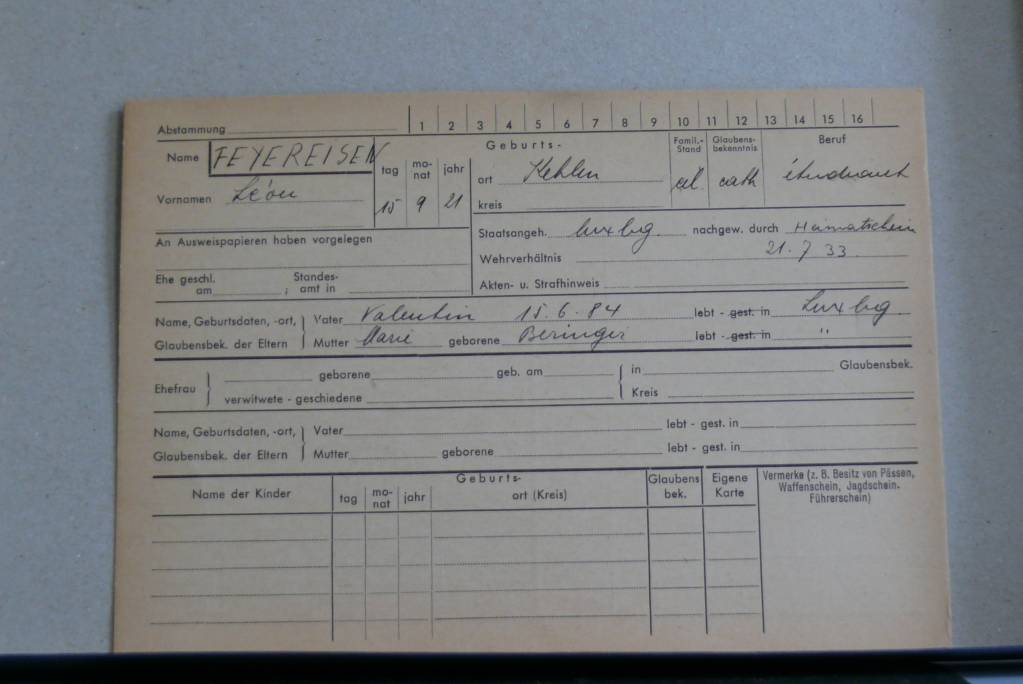 Abstammung 1 2 3 4 5 6 7 8 9 10 11 12 13 14 15 16
Name FEYEREISEN tag mo-nat jahr Geburts- Famil.-Stand Glaubens-bekenntnis Beruf
ort Kehlen cel. cath étudiant
Vornamen Léon 15 9 21 kreis
An Ausweispapieren haben vorgelegen Staatsangeh. luxbg. nachgew. durch Heimatschein
21.7 33.
Wehrverhältnis
Ehe geschl. am ; Standes-amt in Akten- u. Strafhinweis
Name, Geburtsdaten, -ort, Vater Valentin 15.6.84 lebt - gest. in Luxbg
Glaubensbek. der Eltern Mutter Marie geborene Beringer lebt - gest. in "
Ehefrau geborene geb. am in Glaubensbek.
verwitwete - geschiedene Kreis
Name, Geburtsdaten, -ort, Vater lebt - gest. in
Glaubensbek. der Eltern Mutter geborene lebt - gest. in
Name der Kinder tag mo-nat jahr Geburts-ort (Kreis) Glaubens bek. Eigene Karte Vermerke (z. B. Besitz von Pässen,
Waffenschein, Jagdschein.
Führerschein)